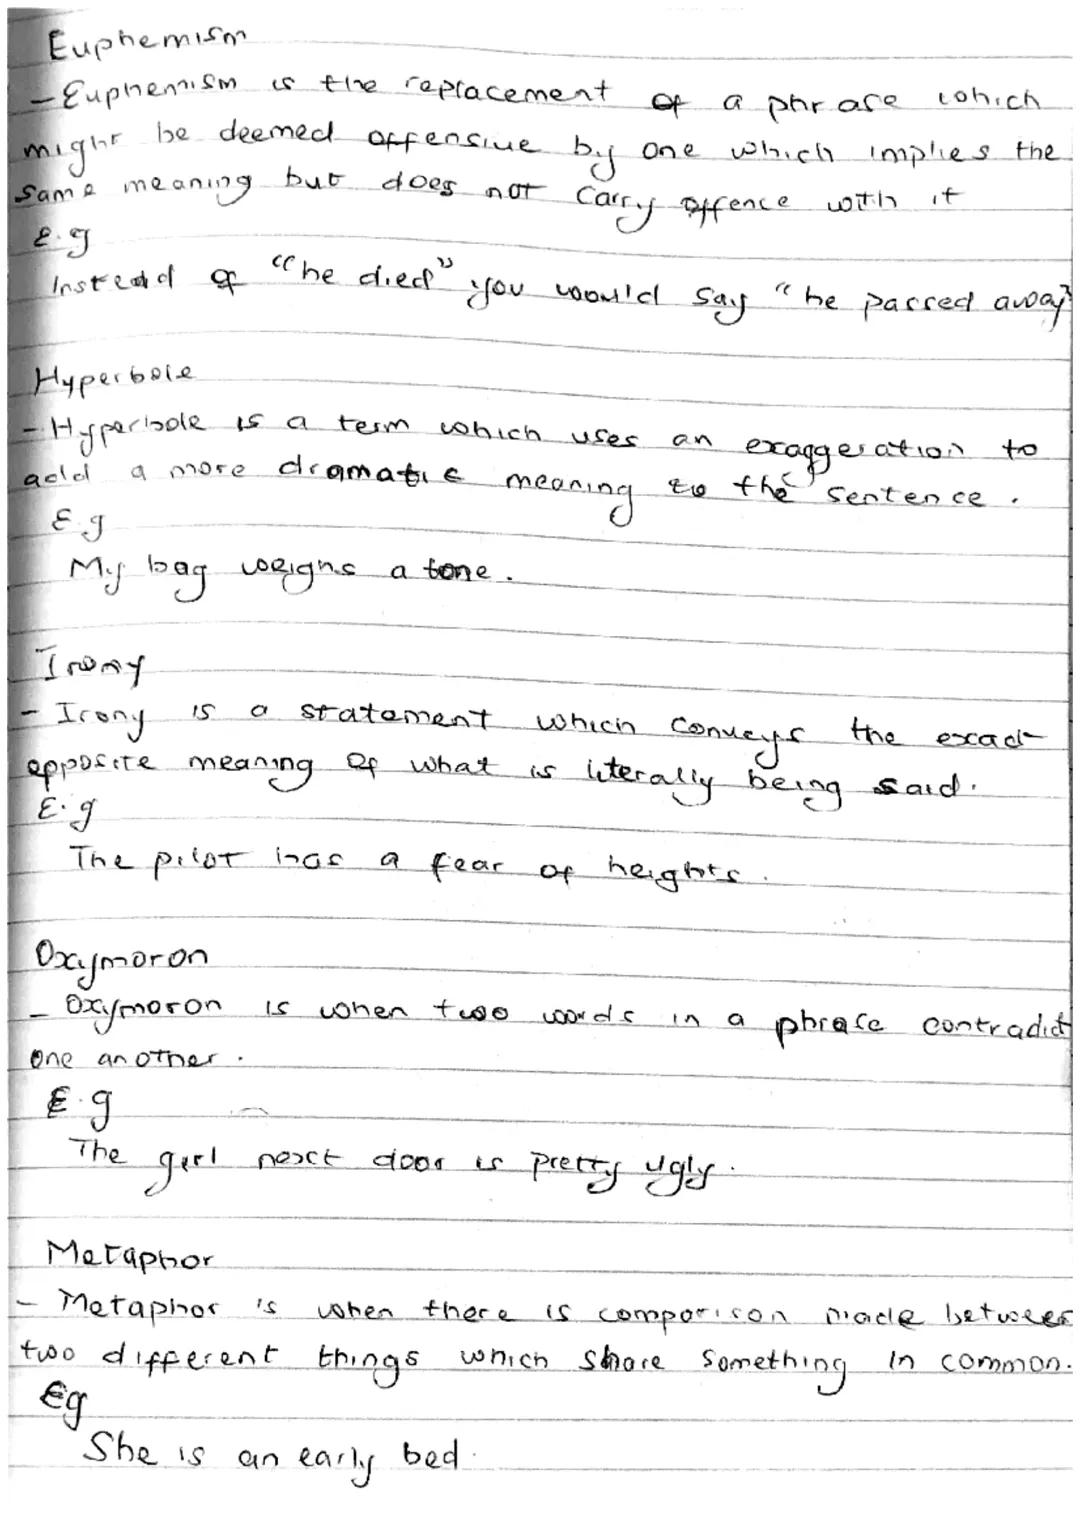 Euphemism
- Euphemism is the replacement of a phrase which
might be deemed offensive by one which implies the
same meaning but does not carry offence with it
E.g
Instead of "he died" you would say "he passed away"
Hyperbole
- Hyperbole is a term which uses an exaggeration to
add a more dramatic meaning to the sentence.
E.g
My bag weighs a tone.
Irony
- Irony is a statement which conveys the exact
opposite meaning of what is literally being said.
E.g
The pilot has a fear of heights.
Oxymoron
- Oxymoron is when two words in a phrase contradict
one another.
E.g
The girl next door is pretty ugly.
Metaphor
- Metaphor is when there is comparison made between
two different things which share something in common.
Eg
She is an early bed.